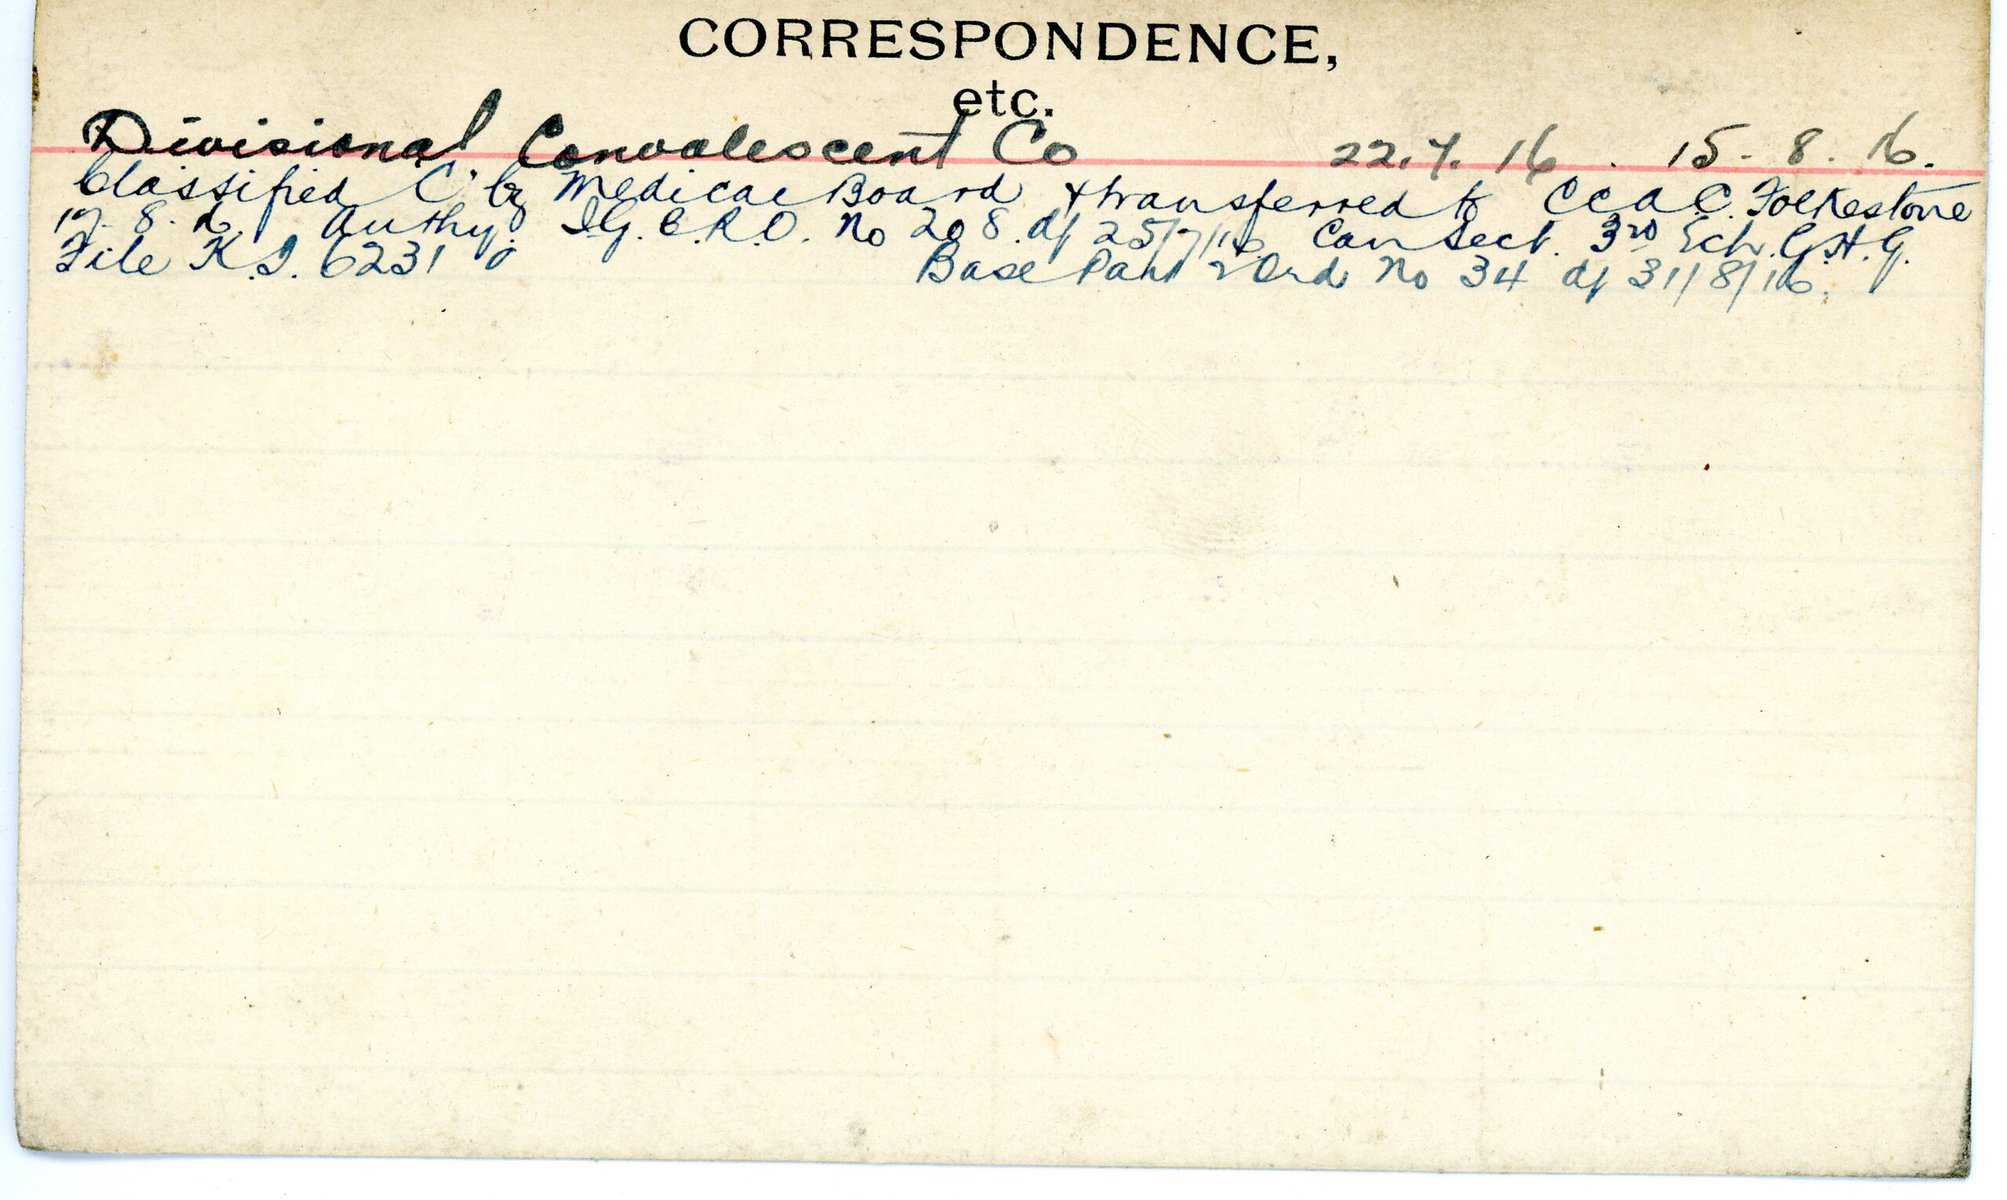 CORRESPONDENCE,
etc.
Divisional Convalescent Co 22.7.16 . 15.8.16.
Classified C by Medical Board & transferred to CCAC. Folkestone
17.8. Authy. I.G.C.R.O. No 208. df 25/7/16. Can Sect. 3rd Ech. G.H.Q.
File K.I. 6231 Base Part 2 Ord No 34 df 31/8/16.